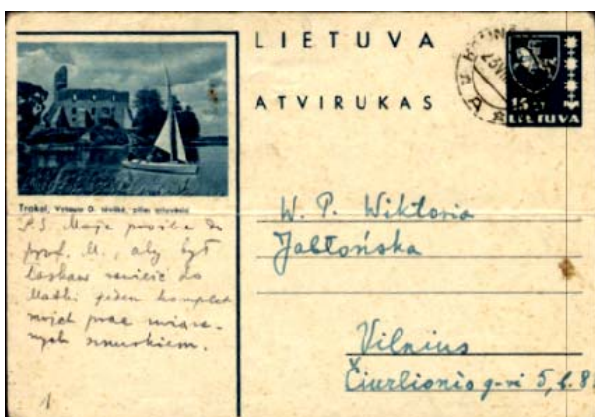 LIETUVA
ATVIRUKAS
15 ct
LIETUVA
Trakai, Vytauto D. tėviškė, pilies griuvėsiai
P.S. Moja prośba do
prof. M., aby był
łaskaw
Matki jeden komplet
moich prac
nych sznurkiem.
1
W. P. Wiktoria
Jabłońska
Vilnius
Čiurlionio g-vi 5, b. 8